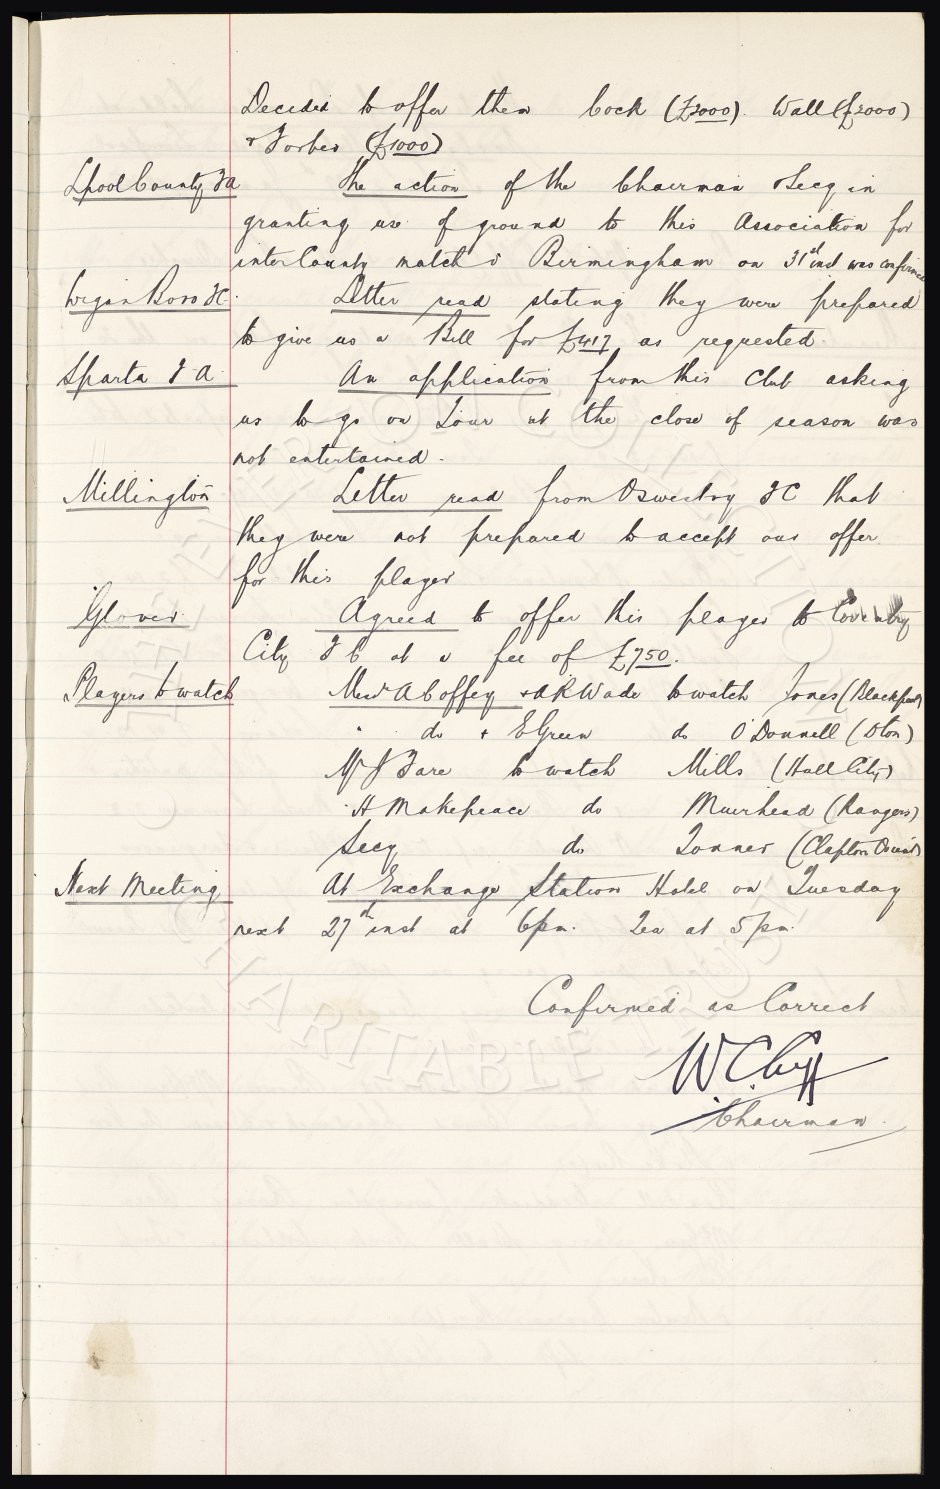 Decided to offer them Cock (£2000). Wall (£2000)
& Forbes (£1000)
Lpool County FA The action of the Chairman & Secy in
granting use of ground to this Association for
inter County match v Birmingham on 31st inst was confirmed
Wigan Boro FC. Letter read stating they were prepared
to give us a Bill for £417 as requested.
Sparta F A. An application from this Club asking
us to go on Tour at the close of season was
not entertained.
Millington Letter read from Oswestry FC that
they were not prepared to accept our offer
for this player
Glover. Agreed to offer this player to Coventry
City F C at a fee of £750.
Players to watch Messrs A Coffey & A R Wade to watch Jones (Blackpool)
" do & E Green do O'Donnell (Dton)
Mr J Fare to watch Mills (Hull City)
" H Makepeace do Muirhead (Rangers)
Secy do Tonner (Clapton Orient)
Next Meeting At Exchange Station Hotel on Tuesday
next 27th inst at 6pm. Tea at 5pm.
Confirmed as Correct
W.C. Cuff
Chairman.
THE EVERTON COLLECTION
CHARITABLE TRUST